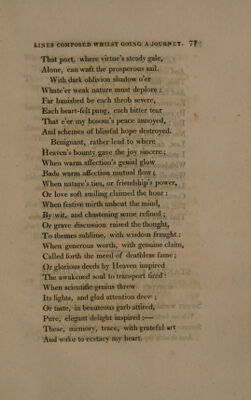 LINES COMPOSED WHILST GOING A JOURNEY. 77
That port, where virtue's steady gale,
Alone, can waft the prosperous sail.
With dark oblivion shadow o'er
Whate'er weak nature must deplore;
Far banished be each throb severe,
Each heart-felt pang, each bitter tear
That e'er my bosom's peace annoyed,
And schemes of blissful hope destroyed.
Benignant, rather lead to where
Heaven's bounty gave the joy sincere;
When warm affection's genial glow
Bade warm affection mutual flow;
When nature's ties, or friendship's power,
Or love soft smiling claimed the hour:
When festive mirth unbent the mind,
By wit, and chastening sense refined;
Or grave discussion raised the thought,
To themes sublime, with wisdom fraught:
When generous worth, with genuine claim,
Called forth the meed of deathless fame;
Or glorious deeds by Heaven inspired
The awakened soul to transport fired:
When scientific genius threw
Its lights, and glad attention drew;
Or taste, in beauteous garb attired,
Pure, elegant delight inspired:—
These, memory, trace, with grateful art
And wake to ecstacy my heart.